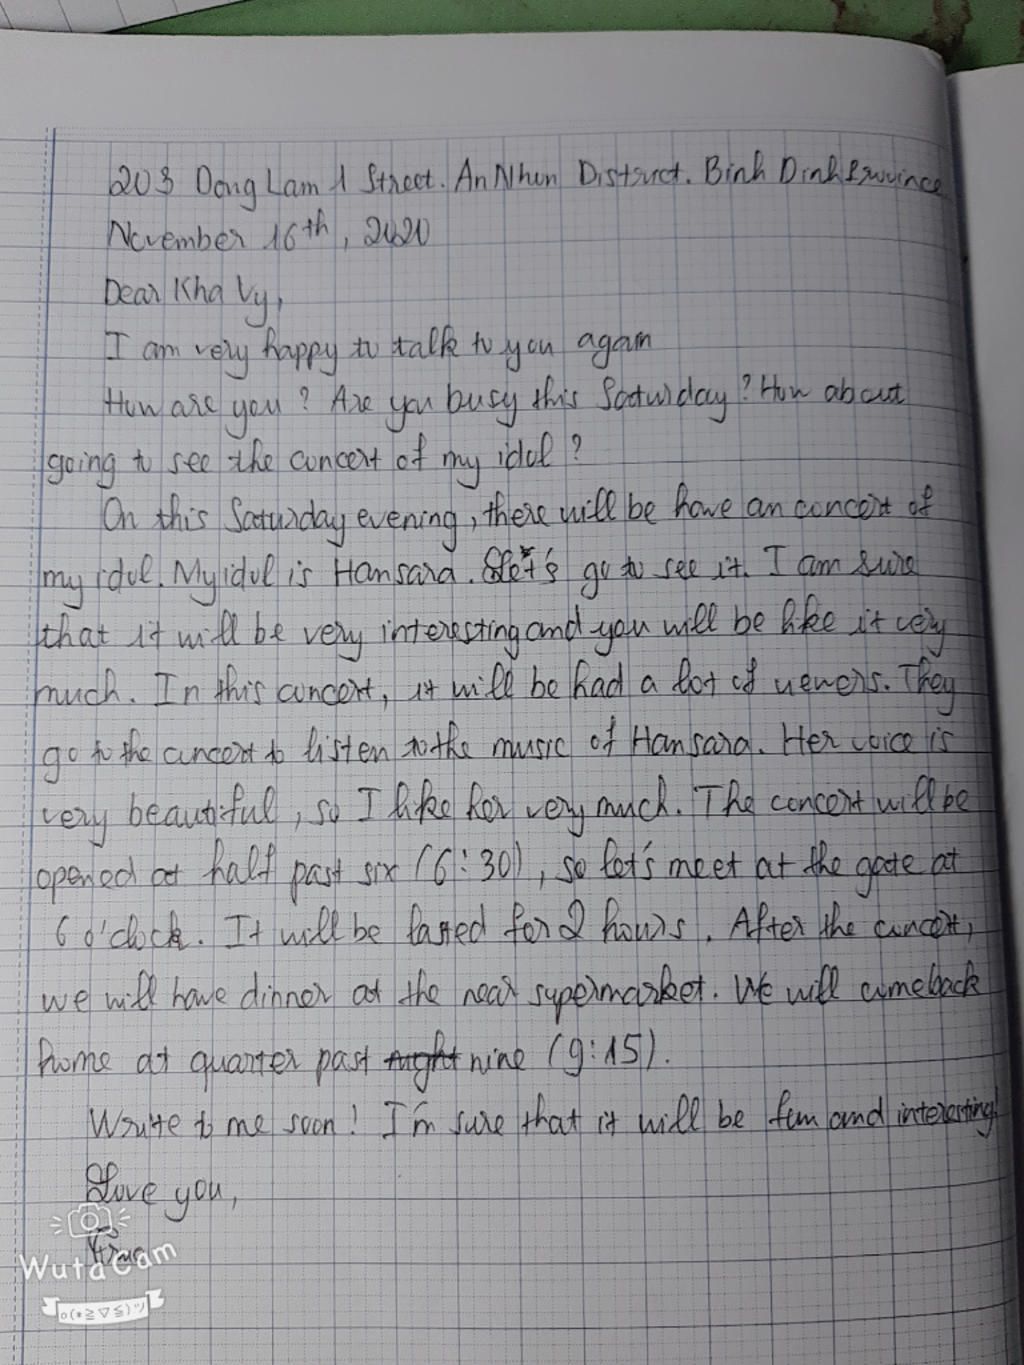 203 Dong Lam 1 Street. An Nhon District. Binh Dinh Province
November 16th, 2020
Dear Kha Vy,
I am very happy to talk to you again
How are you? Are you busy this Saturday? How about
going to see the concert of my idol?
On this Saturday evening, there will be have an concert of
my idol. My idol is Hansara. Let's go to see it. I am sure
that it will be very interesting and you will be like it very
much. In this concert, it will be had a lot of viewers. They
go to the concert to listen to the music of Hansara. Her voice is
very beautiful, so I like her very much. The concert will be
opened at half past six (6:30), so let's meet at the gate at
6 o'clock. It will be lasted for 2 hours. After the concert,
we will have dinner at the near supermarket. We will comeback
home at quarter past nine (9:15).
Write to me soon! I'm sure that it will be fun and interesting!
Love you,
WutaCam
o(*≧▽≦)ツ